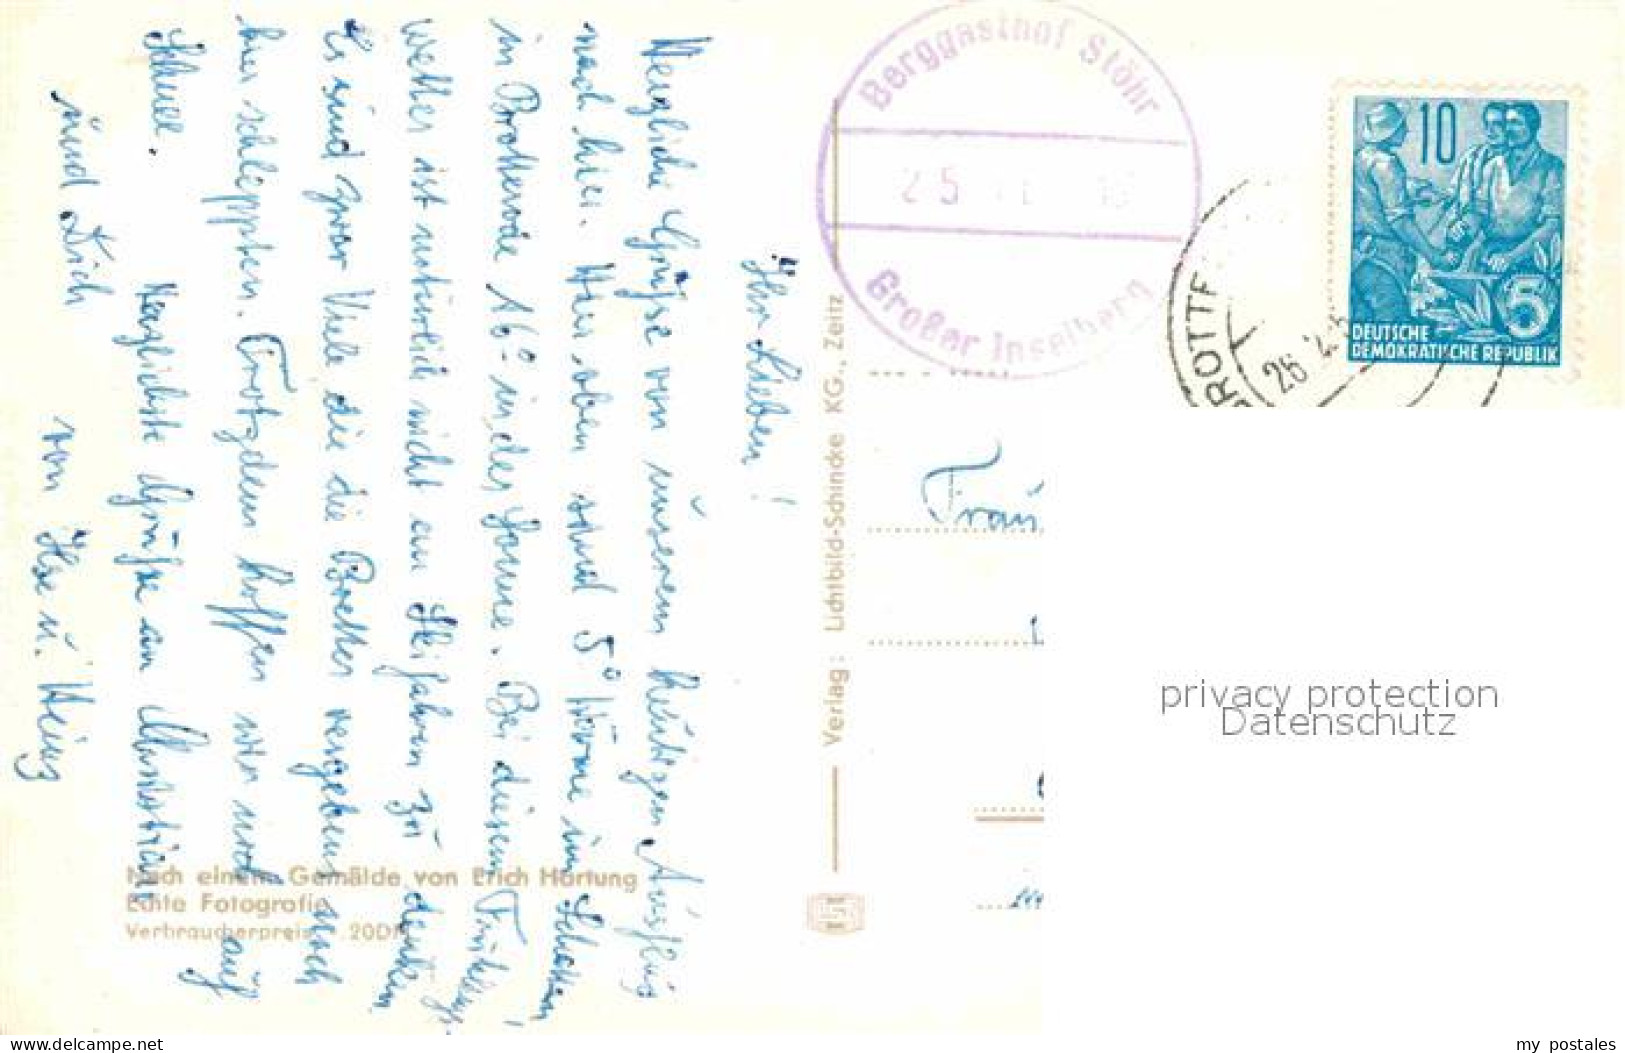 Ihr Lieben!
Herzliche Grüße von unserem heutigen Ausflug
nach hier. Hier oben sind 5° Wärme im Schatten,
in Brotterode 16° in der Sonne. Bei diesem Frühlings-
wetter ist natürlich nicht an Skifahren zu denken.
Es sind zwar Viele die die Bretter vergebens nach
hier schleppten. Trotzdem hoffen wir noch auf
Schnee. Herzlichste Grüße an
und Dich von Ilse u. Heinz
Nach einem Gemälde von Erich Hartung
Echte Fotografie
Verbraucherpreis 20DM
Verlag: Lichtbild-Schincke KG., Zeitz
Berggasthof Stöhr
25
Großer Inselberg
BROTTE
26
10
5
DEUTSCHE
DEMOKRATISCHE REPUBLIK
Frau
privacy protection
Datenschutz
www.delcampe.net
my_postales